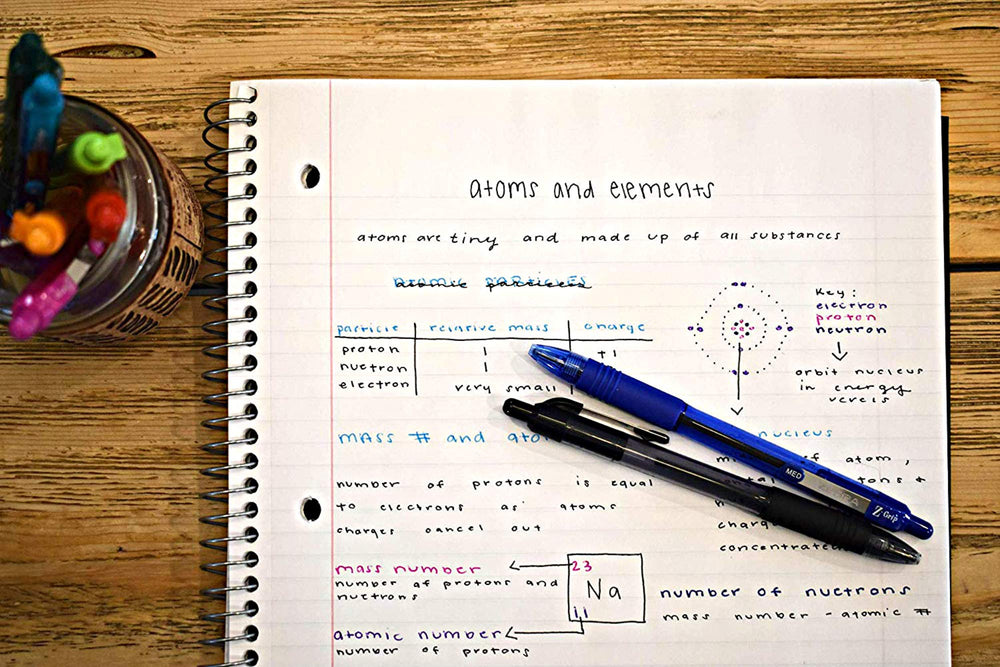 atoms and elements
atoms are tiny and made up of all substances
atomic particles
particle relative mass charge
proton 1 +1
nuetron 1
electron very small
Key:
electron
proton
neutron
orbit nucleus
in energy
verels
mass # and
nucleus
of atom,
number of protons is equal
to electrons as atoms
charges cancel out
concentrated
mass number
number of protons and
nuetrons
23
Na
11
atomic number
number of protons
number of nuetrons
mass number - atomic #
MED
Z-Grip